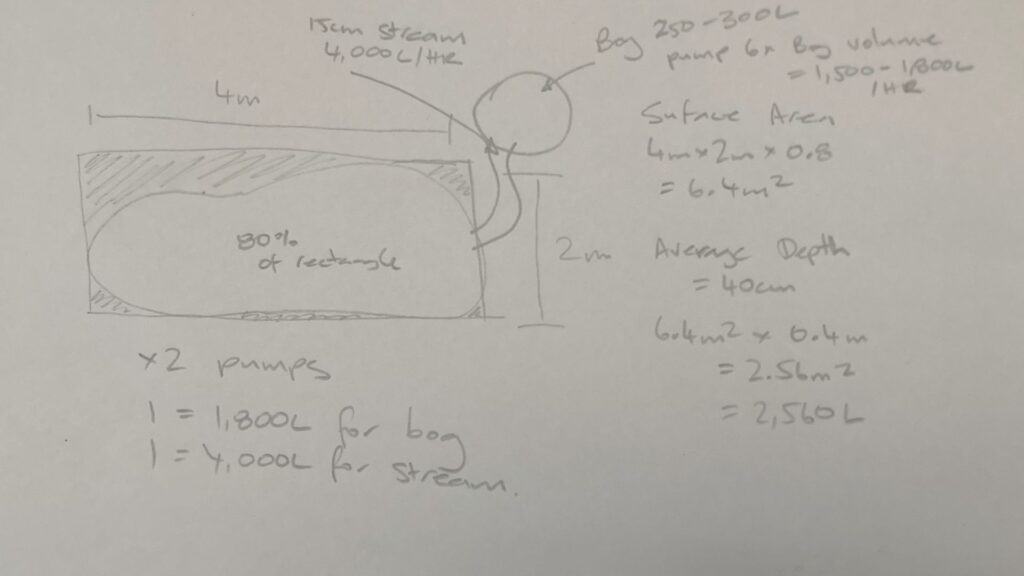 15cm stream
4,000L/HR
Bog 250-300L
pump 6x Bog volume
= 1,500 - 1,800L
/HR
4m
Surface Area
4m x 2m x 0.8
= 6.4m²
80%
of rectangle
2m
Average Depth
= 40cm
6.4m² x 0.4m
= 2.56m²
= 2,560L
x2 pumps
1 = 1,800L for bog
1 = 4,000L for stream.